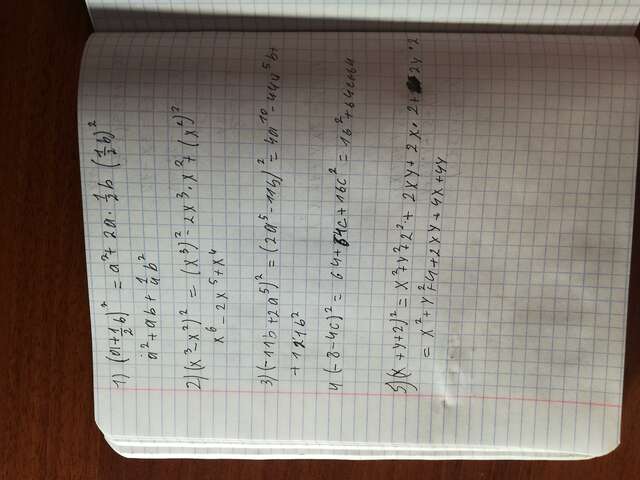 1) (a+½b)² = a²+2a·½b (½b)²
a²+ab+¼b²
2) (x³-x²)² = (x³)²-2x³·x²+(x²)²
x⁶-2x⁵+x⁴
3) (-11b+2a⁵)² = (2a⁵-11b)² = 4a¹⁰-44a⁵b+
+121b²
4 (-8-4c)² = 64+64c+16c² = 16²+64c+64
5) (x+y+2)² = x²+y²+2²+2xy+2x·2+2y·2
= x²+y²+4+2xy+4x+4y